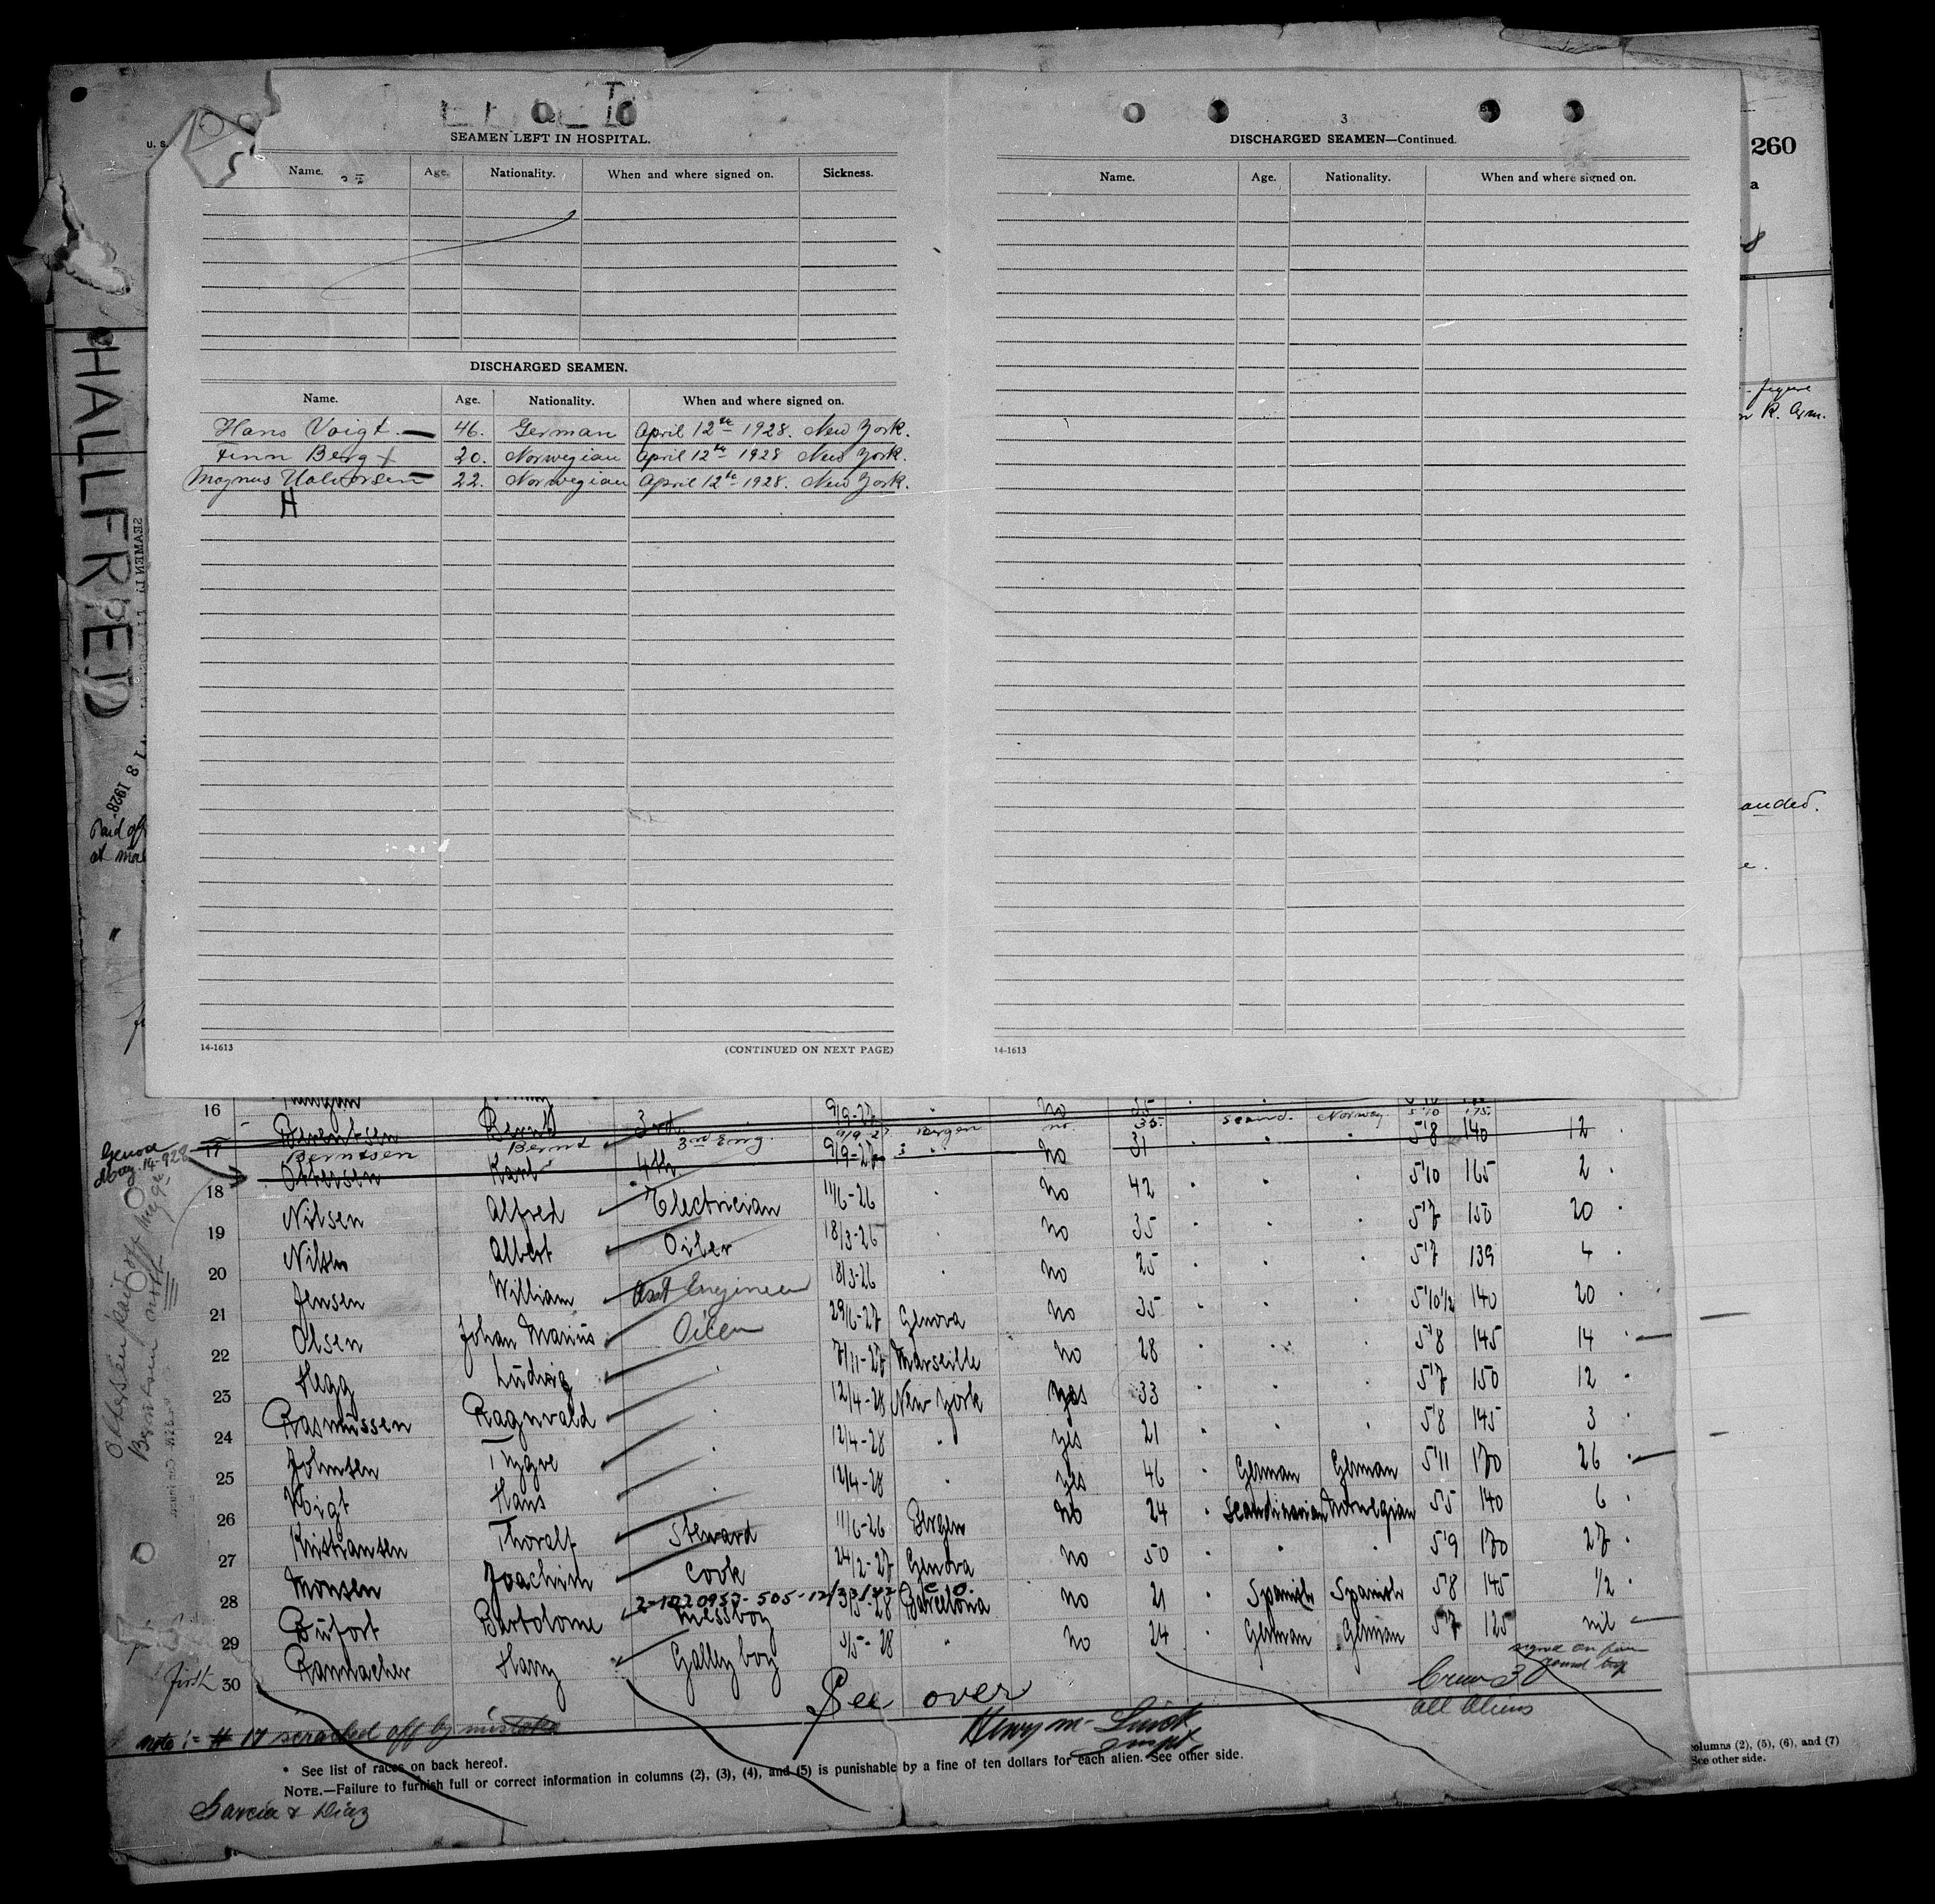 U. S.
SEAMEN LEFT IN HOSPITAL.
Name. Age. Nationality. When and where signed on. Sickness.
DISCHARGED SEAMEN.
Name. Age. Nationality. When and where signed on.
Hans Voigt. 46. German April 12th 1928. New York.
Finn Berg 20. Norwegian April 12th 1928 New York.
Magnus Halvorsen 22. Norwegian April 12th 1928. New York.
H
14-1613 (CONTINUED ON NEXT PAGE)
3
DISCHARGED SEAMEN—Continued.
Name. Age. Nationality. When and where signed on.
14-1613
260
a
8
figure
anded.
e.
HALLFRED
8 1928
Paid off
at
16 9/9-27 " no 35
17 Berentsen Bernt 3rd
Berntsen Bernt 3rd Eng. Bergen no. 35. Scand. Norway 5'10 175.
Ottersen Karl 4th 9/9-27 " no 31 " " " 5'8 140 12
18 Nilsen Alfred Electrician 11/6-26 " no 42 " " " 5'10 165 2
19 Nilsen Albert Oiler 18/3-26 " no 35 " " " 5'7 150 20
20 Jensen William Asst Engineer 18/3-26 " no 25 " " " 5'7 139 4
21 Olsen Johan Marius Oiler 29/6-27 Genova no 35 " " " 5'10 1/2 140 20
22 Hegg Ludvig " 7/11-27 Marseille no 28 " " " 5'8 145 14
23 Rasmussen Ragnvald " 12/4-28 New York yes 33 " " " 5'7 150 12
24 Johnsen Trygve " 12/4-28 " yes 21 " " " 5'8 145 3
25 Voigt Hans " 12/4-28 " yes 46 " German German 5'11 170 26
26 Kristiansen Thoralf Steward 11/6-26 Bergen no 24 " Scandinavian Norwegian 5'5 140 6
27 Monsen Joachim Cook 24/2-27 Genova no 50 " " " 5'9 170 27
28 Bufort Bartolome Messboy 3/5-28 Barcelona no 21 " Spanish Spanish 5'8 145 1/2
29 Ramacher Harry Galley boy 3/5-28 " no 24 " German German 5'7 125 nil
30
first
See over
Crew 30
all aliens
Genova
May 14-928
Ottersen paid off
Berntsen not
note :- # 17 scrached off by mistake
Henry M.
* See list of races on back hereof.
NOTE.—Failure to furnish full or correct information in columns (2), (3), (4), and (5) is punishable by a fine of ten dollars for each alien. See other side.
columns (2), (5), (6), and (7)
See other side.
Garcia & Diaz